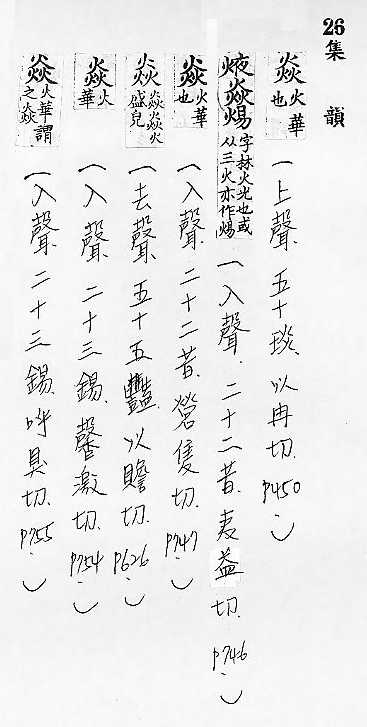 26集韻
焱火華也 一上聲.五十琰.以冉切.P450.
焲焱煬字林火光也或从三火亦作煬 一入聲.二十二昔.夷益切.P746.
焱火華也 一入聲.二十二昔.營隻切.P747.
焱焱焱火盛皃 一去聲.五十五豔.以贍切.P626.
焱火華 一入聲.二十三錫.馨激切.P754.
焱火華謂之焱 一入聲.二十三錫.呼臭切.P755.